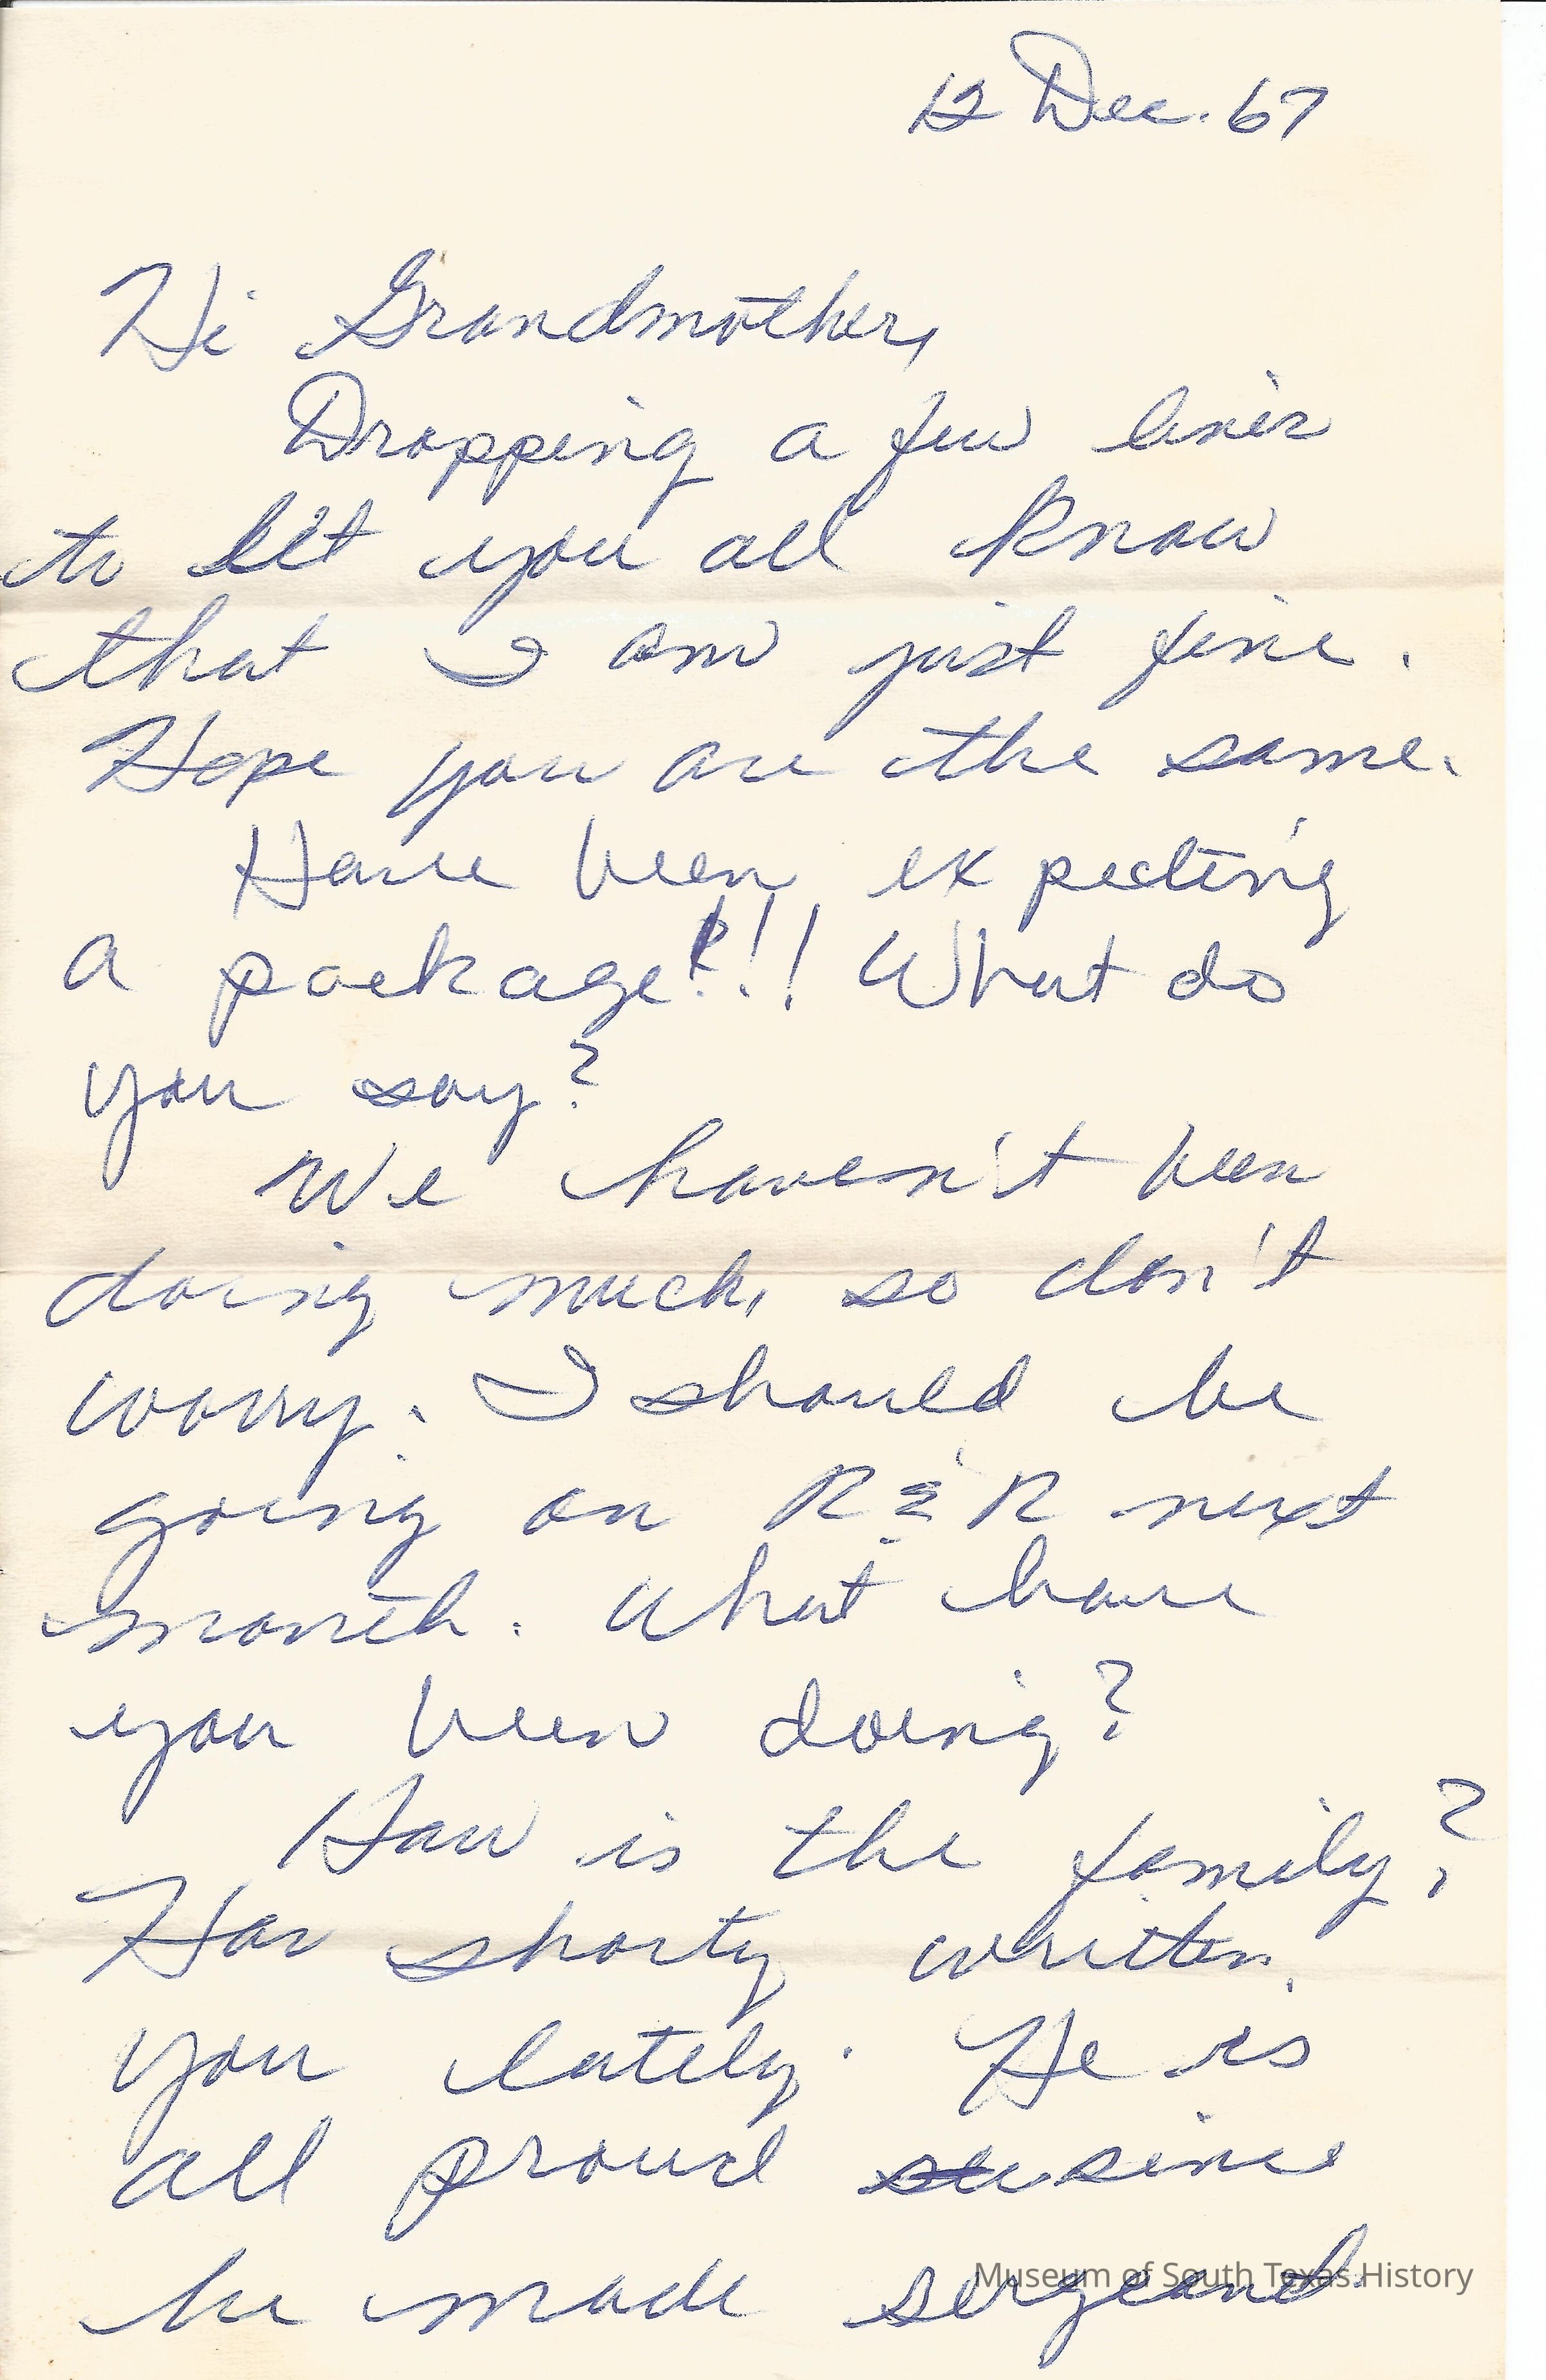 12 Dec. 67
Hi Grandmother,
Dropping a few lines
to let you all know
that I am just fine.
Hope you are the same.
Have been expecting
a package!!! What do
you say?
We haven't been
doing much, so don't
worry. I should be
going on R & R next
month. What have
you been doing?
How is the family?
Has shorty written
you lately. He is
all proud since
he made sergeant.
Museum of South Texas History